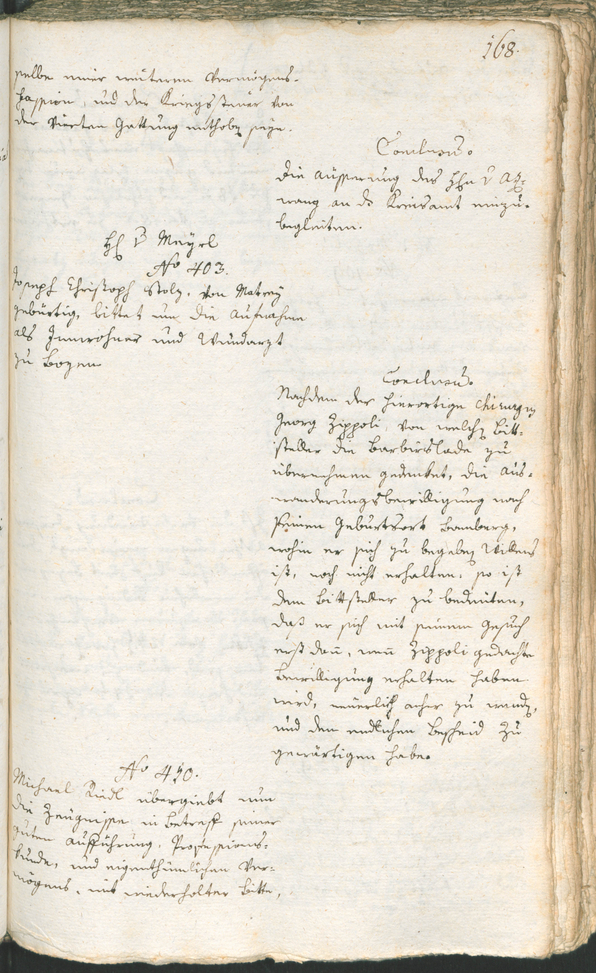 168.
selbe einer weiteren Vermögens-
fassion, und der Kriegssteuer von
der vierten Gattung enthoben seye.
Conclusum.
Die Äusserung des Hhn v
an das Kreisamt einzu-
begleiten.
Hh B Mayrl
No 403.
Joseph Christoph Stolz, von Matrey
gebürtig, bittet um die Aufnahm
als Innwohner und Wundarzt
zu Bozen
Conclusum.
Nachdem der hierortige Chirurgus
Georg Zippoli, von welchem Bitt-
steller die Barbierslade zu
übernehmen gedenket, die Aus-
wanderungsbewilligung nach
seinen Geburtsort Bamberg,
wohin er sich zu begeben Willens
ist, noch nicht erhalten, so ist
dem Bittsteller zu bedeuten,
daß er sich mit seinem Gesuch
erst dann, wenn Zippoli gedachte
Bewilligung erhalten haben
wird, neuerlich anher zu wenden,
und den endlichen Bescheid zu
gewärtigen habe.
No 420.
Michael Riedl übergiebt nun
die Zeugnisse in Betreff seiner
guten Aufführung, Professions-
kunde, und eigenthümlichen Ver-
mögens, mit wiederholter Bitte,